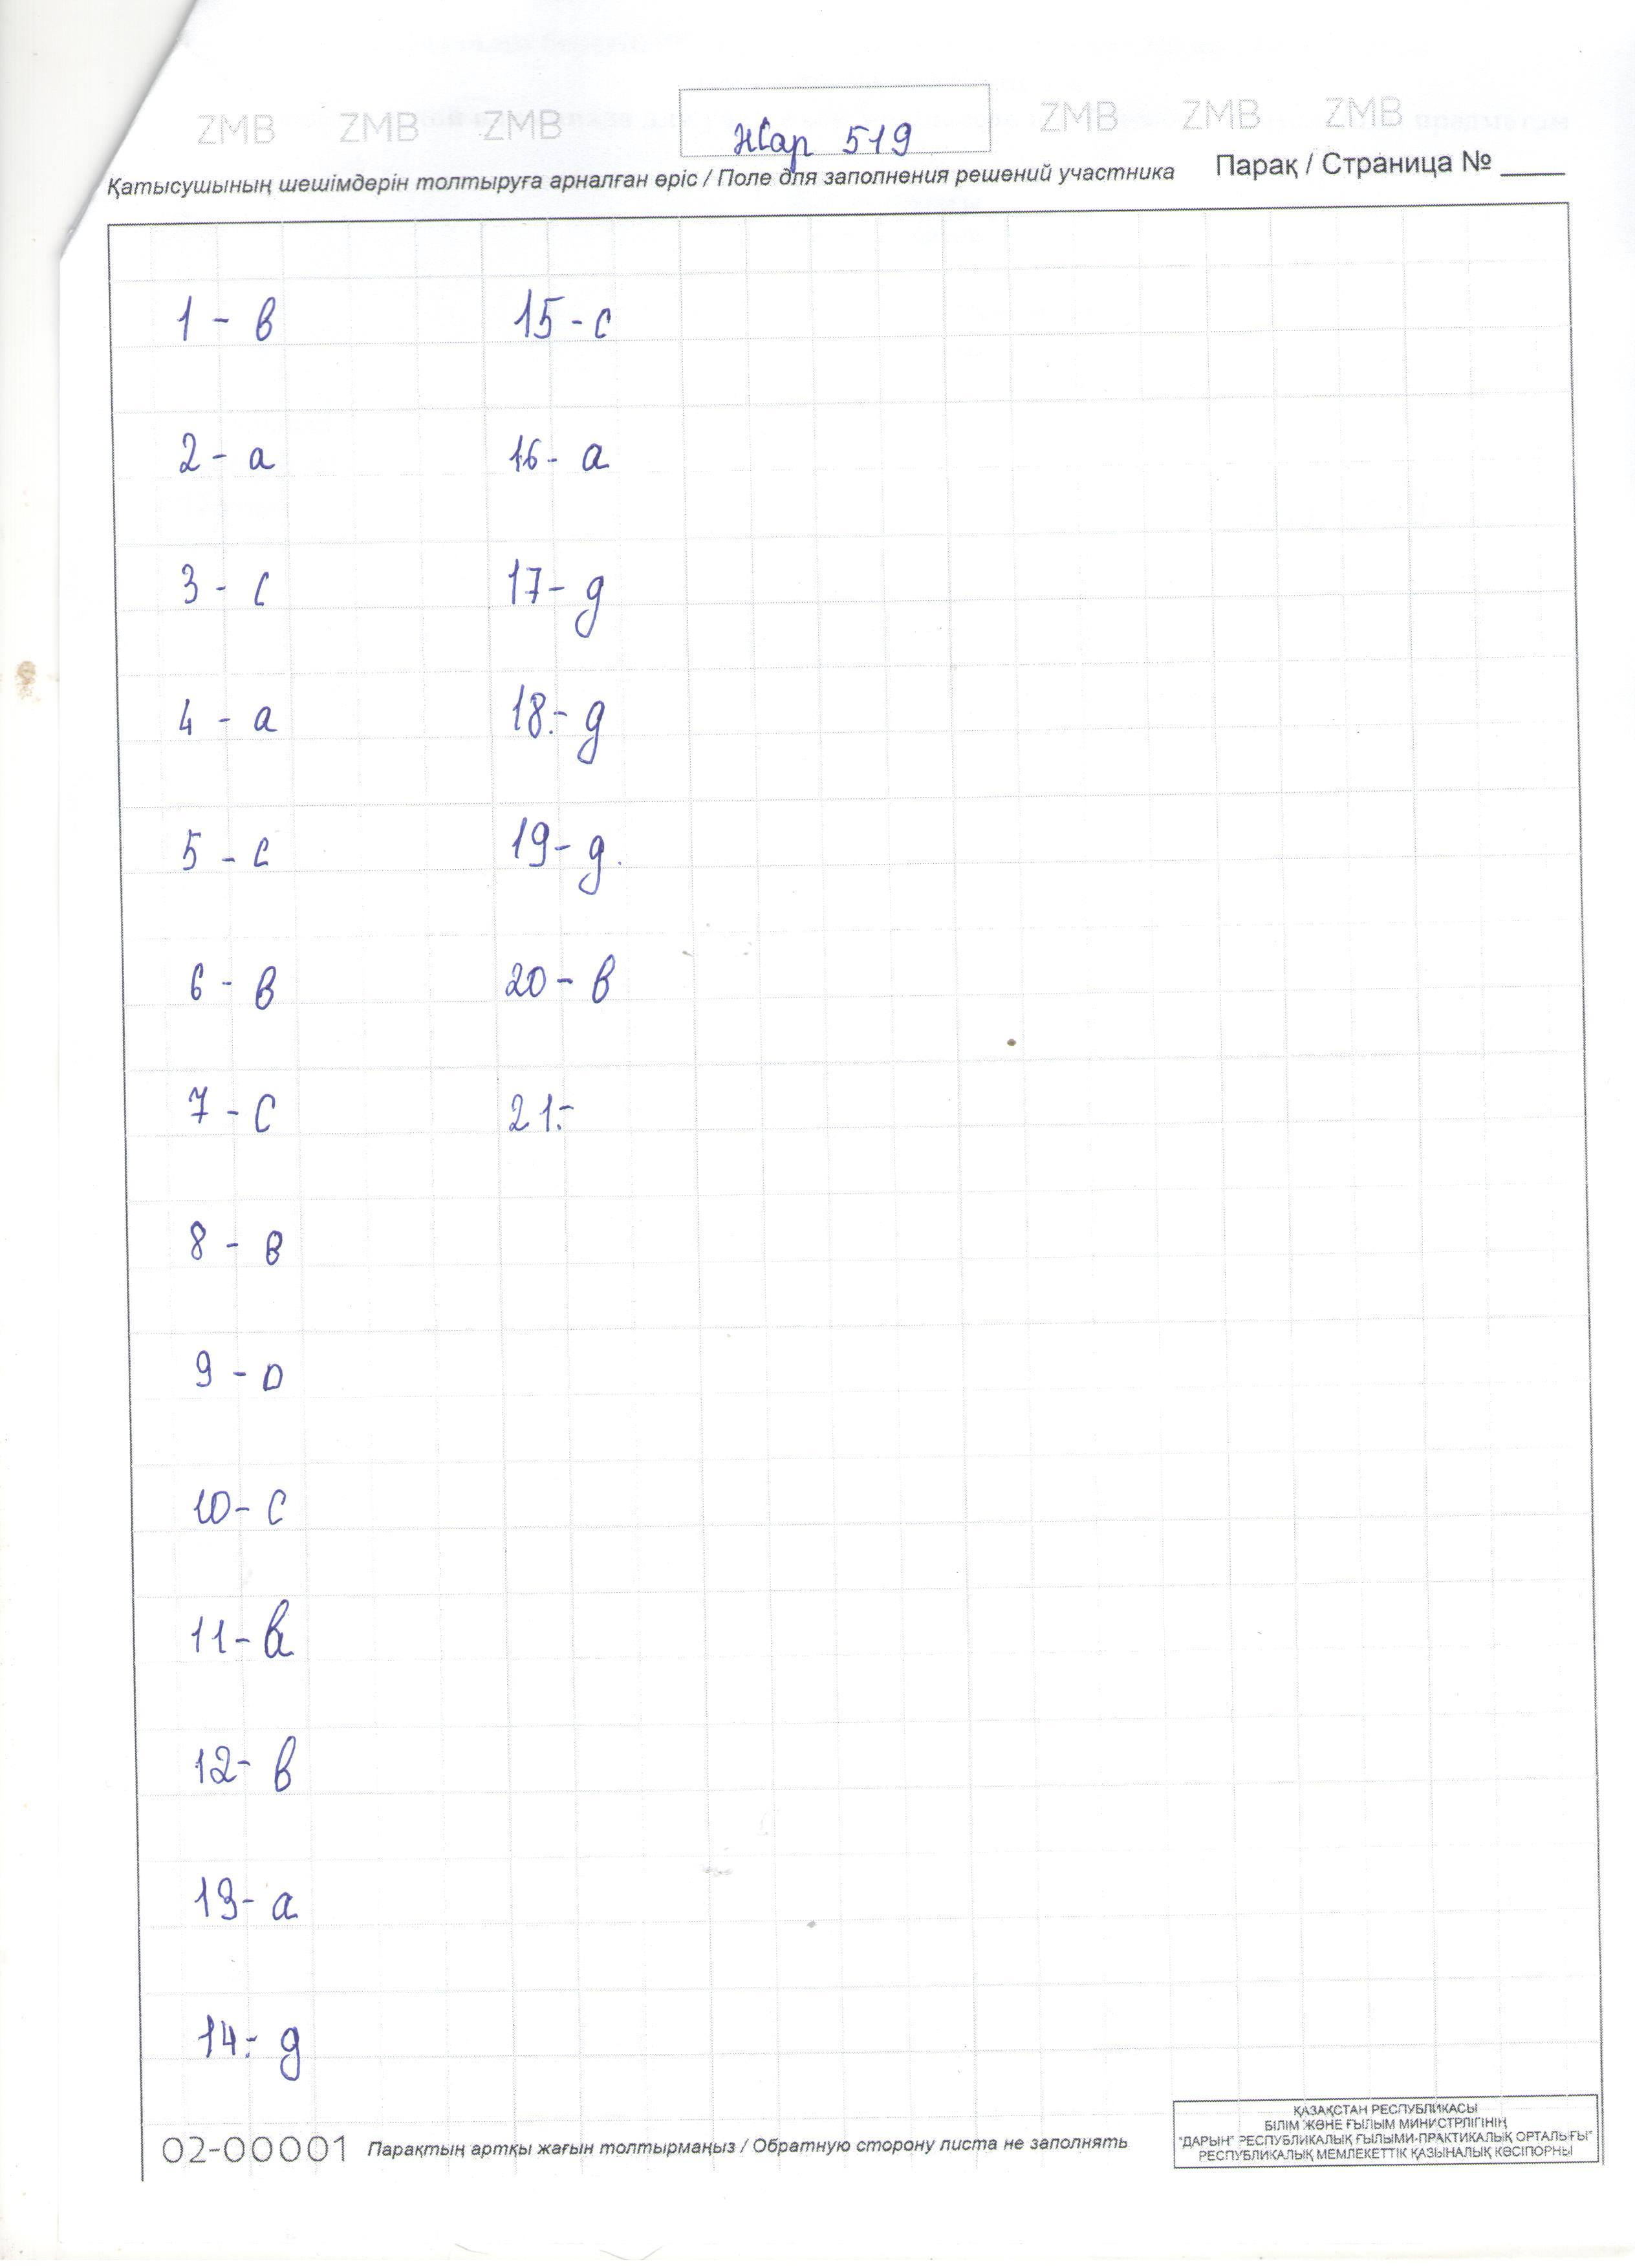 ZMB ZMB ZMB ZMB ZMB ZMB
Жар 519
Қатысушының шешімдерін толтыруға арналған өріс / Поле для заполнения решений участника
Парақ / Страница № ____
1 - в
2 - а
3 - с
4 - а
5 - с
6 - в
7 - с
8 - в
9 - D
10 - с
11 -
12 - в
13 - а
14.- д
15 - с
16 - а
17 - д
18.- д
19 - д.
20 - в
21.-
02-00001
Парақтың артқы жағын толтырмаңыз / Обратную сторону листа не заполнять
ҚАЗАҚСТАН РЕСПУБЛИКАСЫ
БІЛІМ ЖӘНЕ ҒЫЛЫМ МИНИСТРЛІГІНІҢ
"ДАРЫН" РЕСПУБЛИКАЛЫҚ ҒЫЛЫМИ-ПРАКТИКАЛЫҚ ОРТАЛЫҒЫ"
РЕСПУБЛИКАЛЫҚ МЕМЛЕКЕТТІК ҚАЗЫНАЛЫҚ КӘСІПОРНЫ